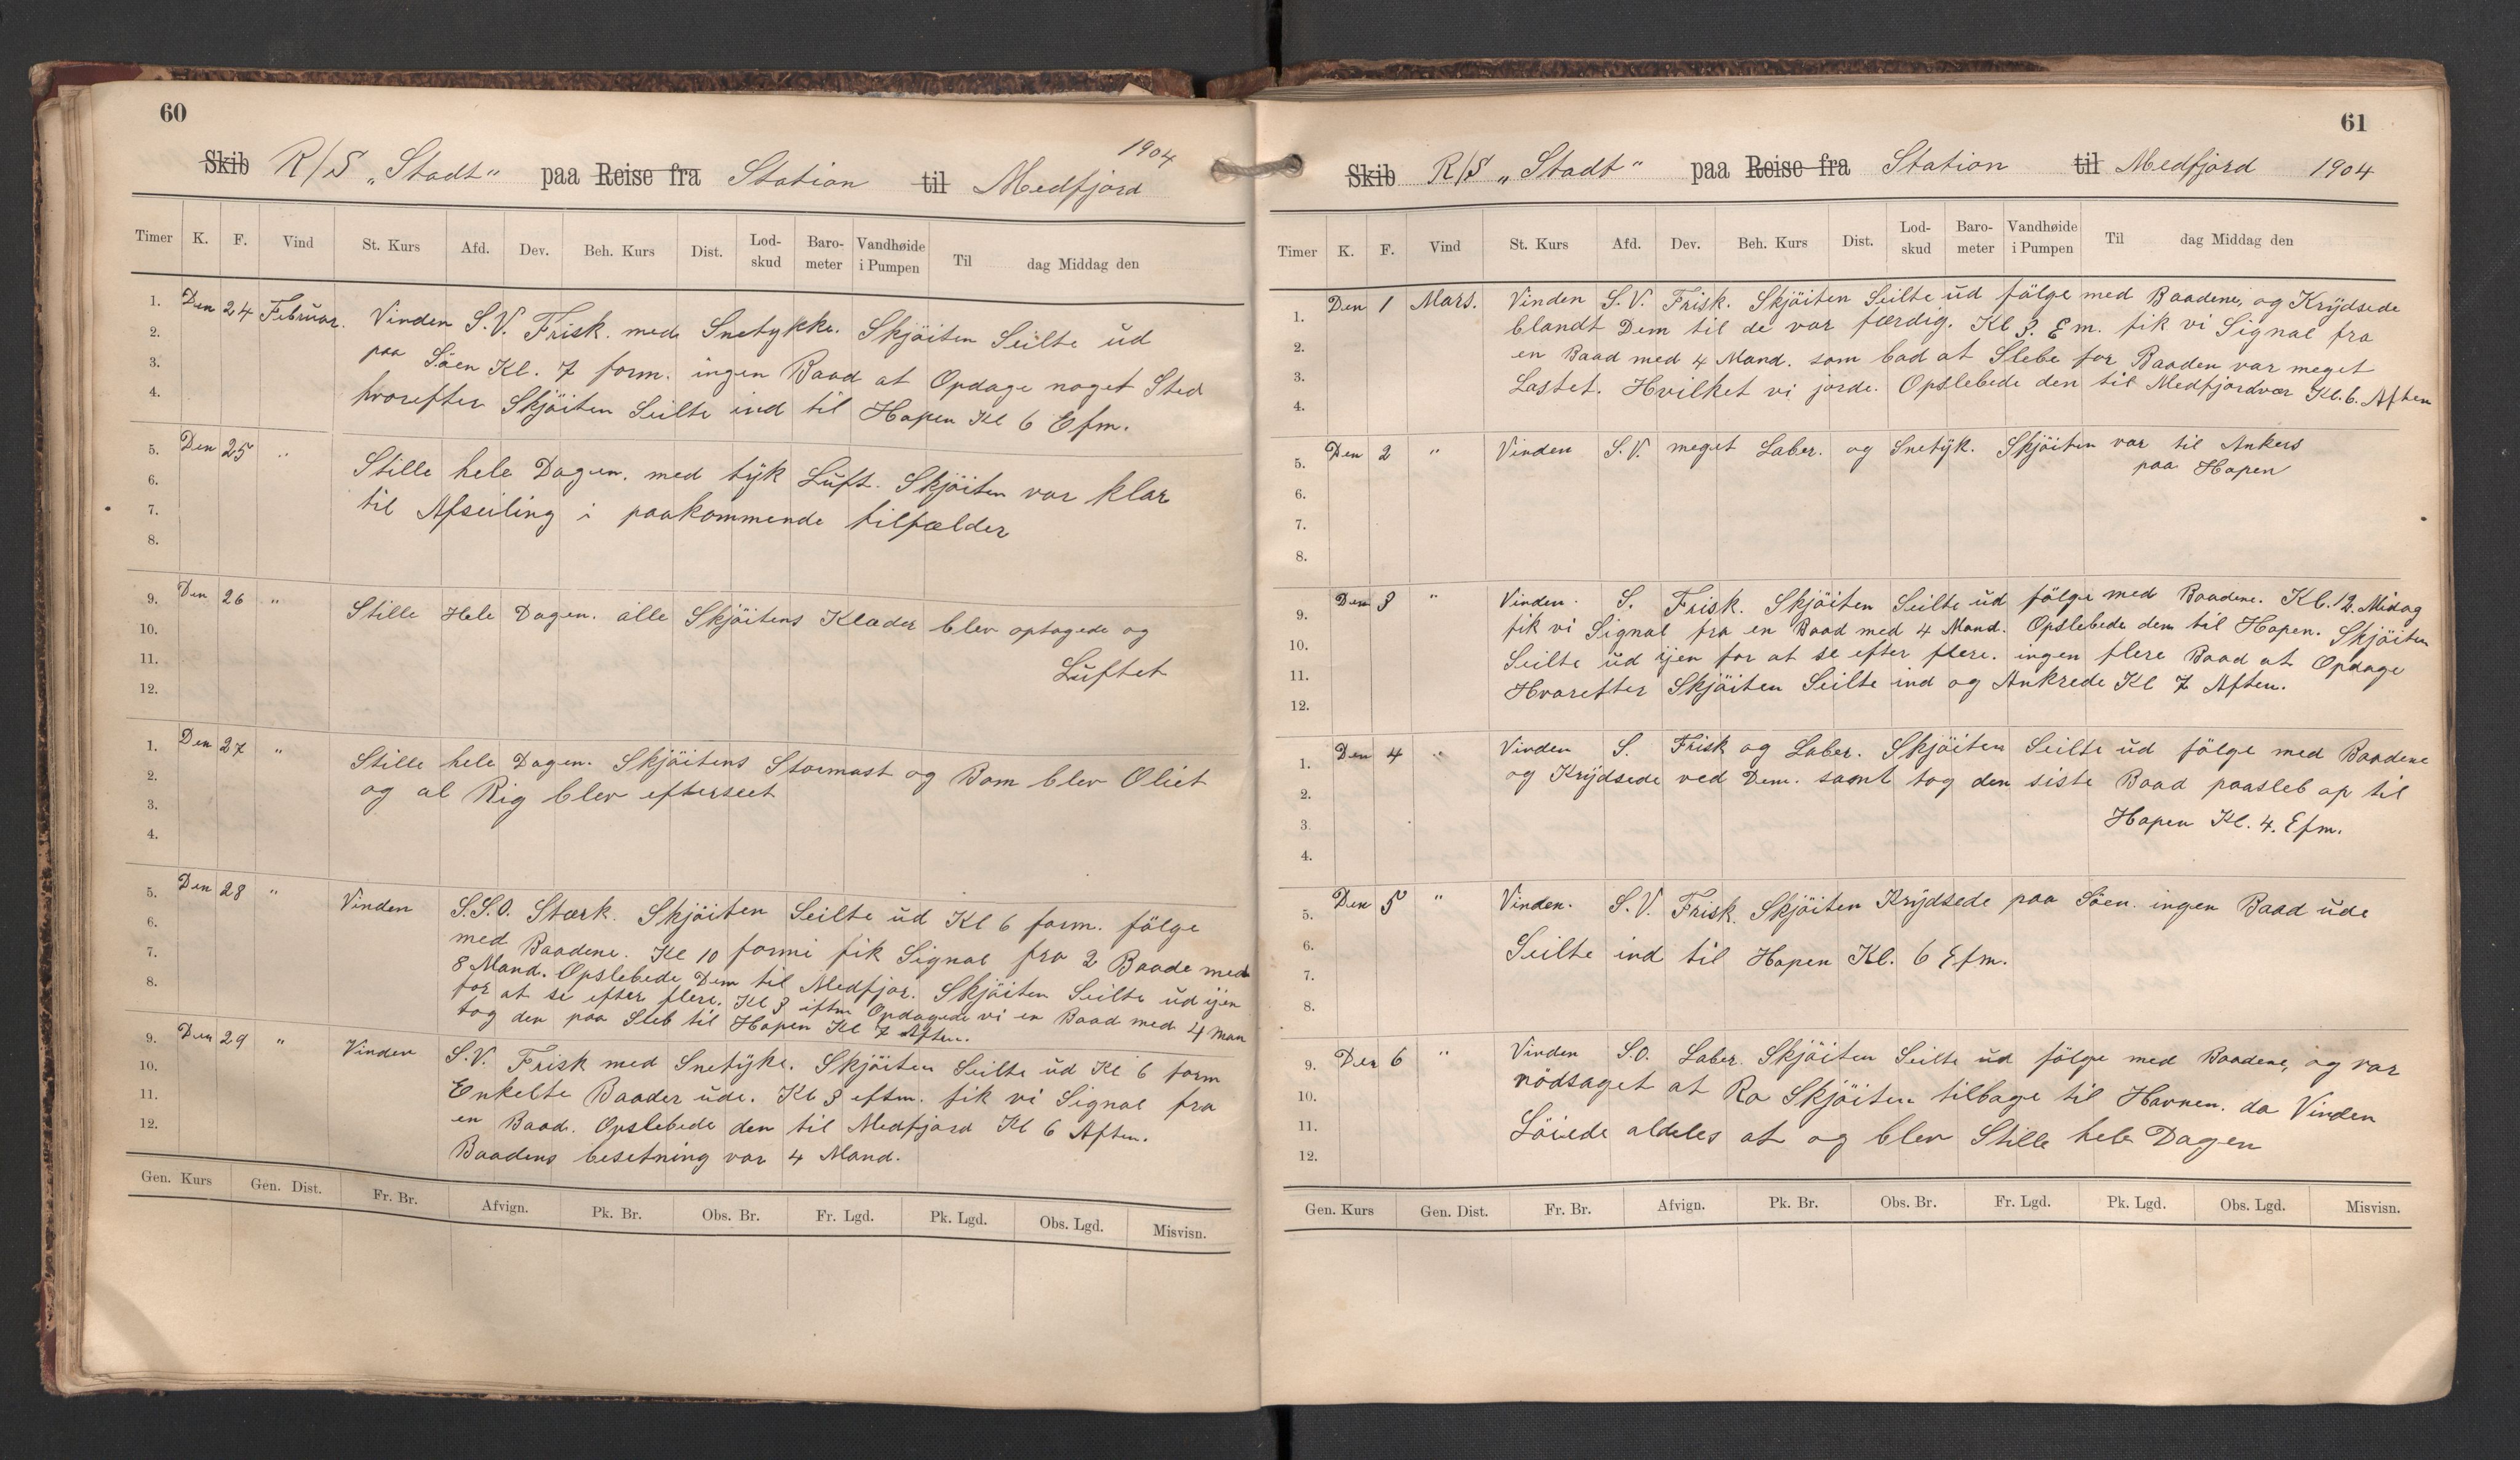 60
1904
Skib R/S „Stadt“ paa Reise fra Station til Medfjord
Timer K. F. Vind St. Kurs Afd. Dev. Beh. Kurs Dist. Lod-skud Baro-meter Vandhøide i Pumpen Til dag Middag den
1.
2.
3.
4.
Den 24 Februar. Vinden S.V. Frisk. med Snetykke. Skjöiten Seilte ud
paa Söen Kl. 7 form. ingen Baad at Opdage noget Sted
hvorefter Skjöiten Seilte ind til Hopen Kl 6 Efm.
5.
6.
7.
8.
Den 25 „ Stille hele Dagen. med tyk Luft. Skjöiten var klar
til Afseiling i paakommende tilfælder
9.
10.
11.
12.
Den 26 „ Stille Hele Dagen. alle Skjöitens Klæder blev optagede og
Luftet
1.
2.
3.
4.
Den 27 „ Stille hele Dagen. Skjöitens Stormast og Bom blev Oliet
og al Rig blev efterseet
5.
6.
7.
8.
Den 28 „ Vinden S.S.O. Stærk. Skjöiten Seilte ud Kl 6 form. fölge
med Baadene. Kl 10 formi fik Signal fra 2 Baade med
8 Mand. Opslebede Dem til Medfjor. Skjöiten Seilte ud ijen
for at se efter flere. Kl 3 eftm Opdagede vi en Baad med 4 Man
tog den paa Sleb til Hopen Kl 7 Aften.
9.
10.
11.
12.
Den 29 „ Vinden S.V. Frisk med Snetyke. Skjöiten Seilte ud Kl 6 form
Enkelte Baader ude. Kl 3 eftm. fik vi Signal fra
en Baad. Opslebede den til Medfjord Kl 6 Aften.
Baadens besetning var 4 Mand.
Gen. Kurs Gen. Dist. Fr. Br. Afvign. Pk. Br. Obs. Br. Fr. Lgd. Pk. Lgd. Obs. Lgd. Misvisn.
61
Skib R/S „Stadt“ paa Reise fra Station til Medfjord 1904
Timer K. F. Vind St. Kurs Afd. Dev. Beh. Kurs Dist. Lod-skud Baro-meter Vandhøide i Pumpen Til dag Middag den
1.
2.
3.
4.
Den 1 Mars. Vinden S.V. Frisk. Skjöiten Seilte ud fölge med Baadene, og Krydsede
blandt Dem til de var færdig. Kl 3. Em. fik vi Signal fra
en Baad med 4 Mand. som bad at Slebe for Baaden var meget
Lastet. Hvilket vi jorde. Opslebede den til Medfjordvær Kl. 6. Aften
5.
6.
7.
8.
Den 2 „ Vinden S.V. meget Laber. og Snetyk. Skjöiten var til Ankers
paa Hopen
9.
10.
11.
12.
Den 3 „ Vinden. S. Frisk. Skjöiten Seilte ud fölge med Baadene. Kl. 12. Midag
fik vi Signal fra en Baad med 4 Mand. Opslebede dem til Hopen. Skjöiten
Seilte ud ijen for at se efter flere. ingen flere Baad at Opdage
Hvorefter Skjöiten Seilte ind og Ankrede Kl 7 Aften.
1.
2.
3.
4.
Den 4 „ Vinden S. Frisk og Laber. Skjöiten Seilte ud fölge med Baadene
og Krydsede ved Dem. samt tog den siste Baad paasleb op til
Hopen Kl. 4. Efm.
5.
6.
7.
8.
Den 5 „ Vinden. S.V. Frisk. Skjöiten Krydsede paa Söen. ingen Baad ude
Seilte ind til Hopen Kl. 6 Efm.
9.
10.
11.
12.
Den 6 „ Vinden S.O. Laber. Skjöiten Seilte ud fölge med Baadene, og var
nödsaget at Ro Skjöiten tilbage til Havnen. da Vinden
Löiede aldeles af og blev Stille hele Dagen
Gen. Kurs Gen. Dist. Fr. Br. Afvign. Pk. Br. Obs. Br. Fr. Lgd. Pk. Lgd. Obs. Lgd. Misvisn.